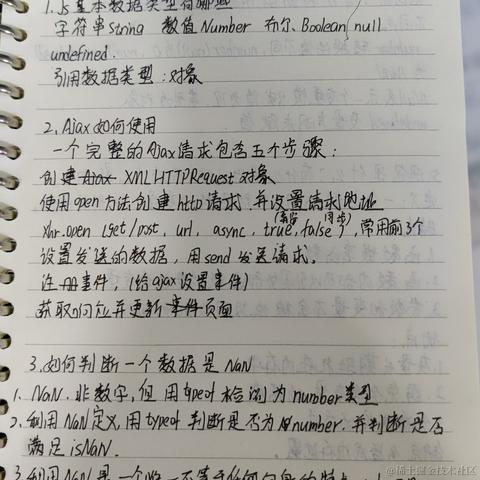 1.JS基本数据类型有哪些
字符串String 数值Number 布尔、Boolean null
undefined.
引用数据类型:对象
2.Ajax如何使用
一个完整的Ajax请求包含五个步骤:
创建Ajax XMLHTTPRequest 对象
使用open方法创建http请求,并设置请求地址
xhr.open (get/post, url, async, true(异步), false(同步)),常用前3个
设置发送的数据,用send发送请求.
注册事件,(给ajax设置事件)
获取响应并更新事件页面
3.如何判断一个数据是NaN
1. NaN.非数字,但用typeof检测为number类型
2.利用NaN定义,用typeof判断是否为number.并判断是否
满足isNaN.
3.利用NaN是一个唯一不等于任何自身的特点
@稀土掘金技术社区